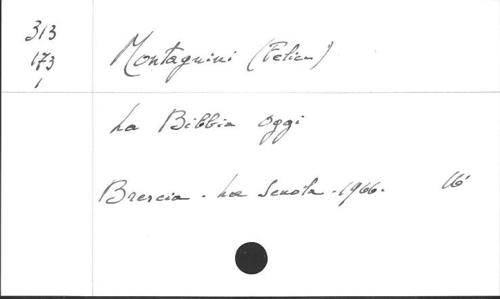 313
173
1
Montagnini (Felice)
La Bibbia oggi
Brescia - La Scuola - 1966. 16°